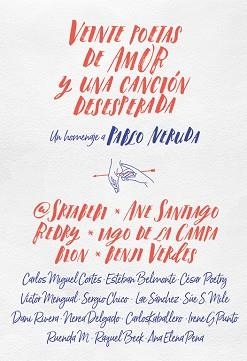 VEINTE POETAS
DE AMOR
Y UNA CANCIÓN
DESESPERADA
Un homenaje a PABLO NERUDA
@SRTABEBI * ANE SANTIAGO
REDRY * IAGO DE LA CAMPA
DION * BENJI VERDES
Carlos Miguel Cortés · Esteban Belmonte · César Poetry
Víctor Mengual · Sergio Chico · Lae Sánchez · Sue S. Mile
Dani Rivera · Nerea Delgado · Carlos Kaballero · Irene G Punto
Rvenda M · Raquel Beck · Ana Elena Pena